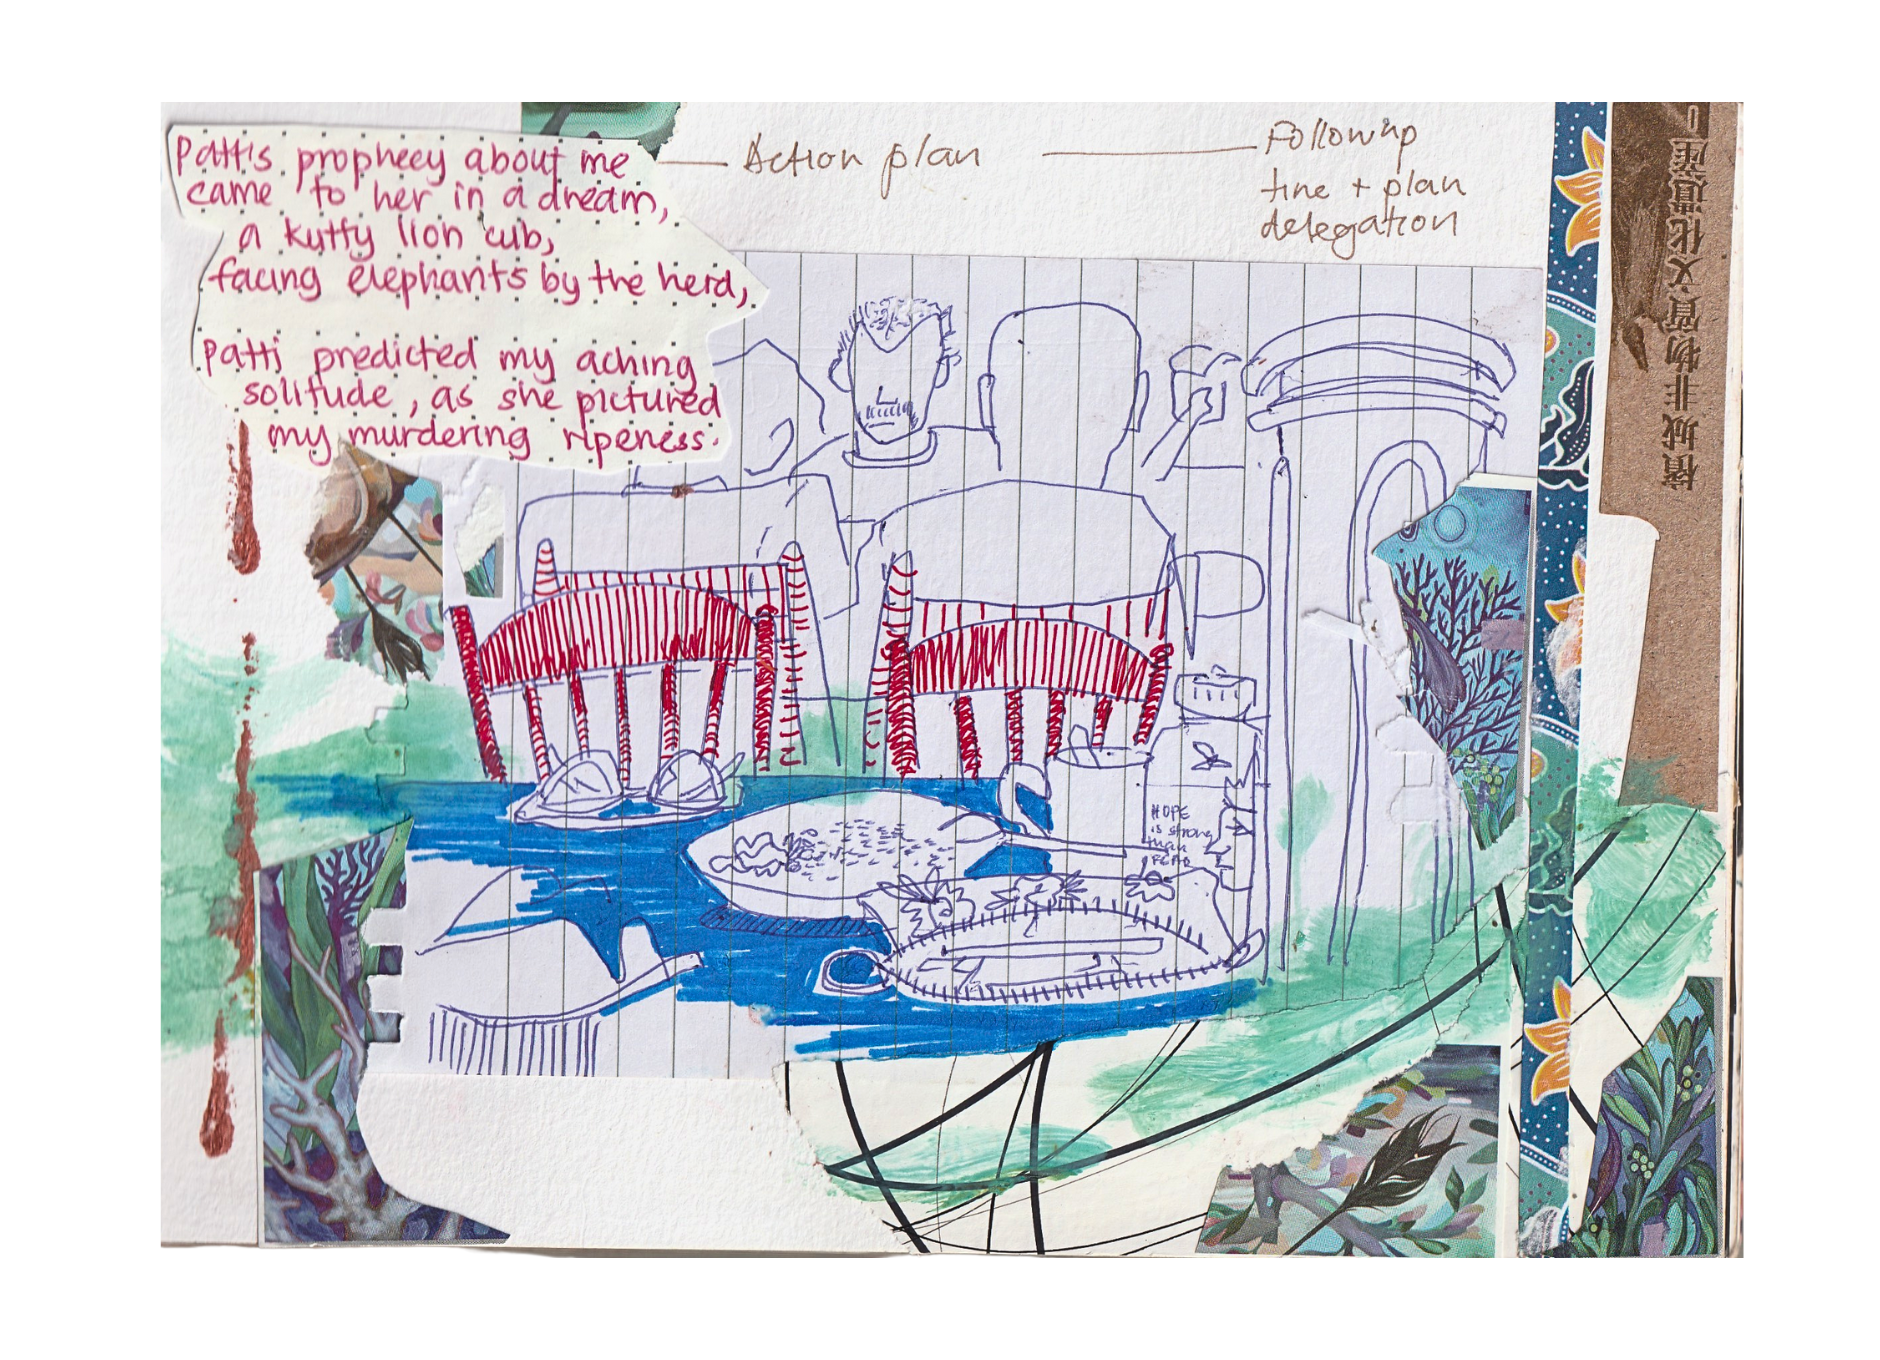 Patti's prophecy about me
came to her in a dream,
a kutty lion cub,
facing elephants by the herd,
Patti predicted my aching
solitude, as she pictured
my murdering ripeness.
Action plan
Followup
time + plan
delegation
HOPE
is strong
than
FEAR
檳城非物質文化遺產